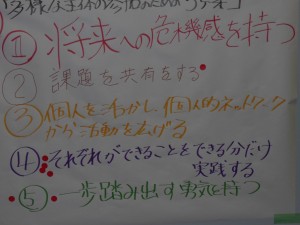 多様な主体の参加のための
① 将来への危機感を持つ
② 課題を共有をする
③ 個人を活かし、個人的ネットワーク
から活動を広げる
④ それぞれができることをできる分だけ
実践する
⑤ 一歩踏み出す勇気を持つ